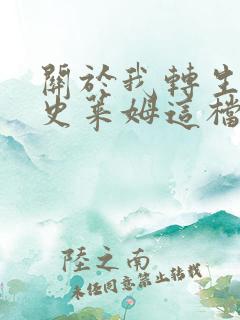 關於我轉生
史萊姆這檔
陸之南
未經同意禁止轉載